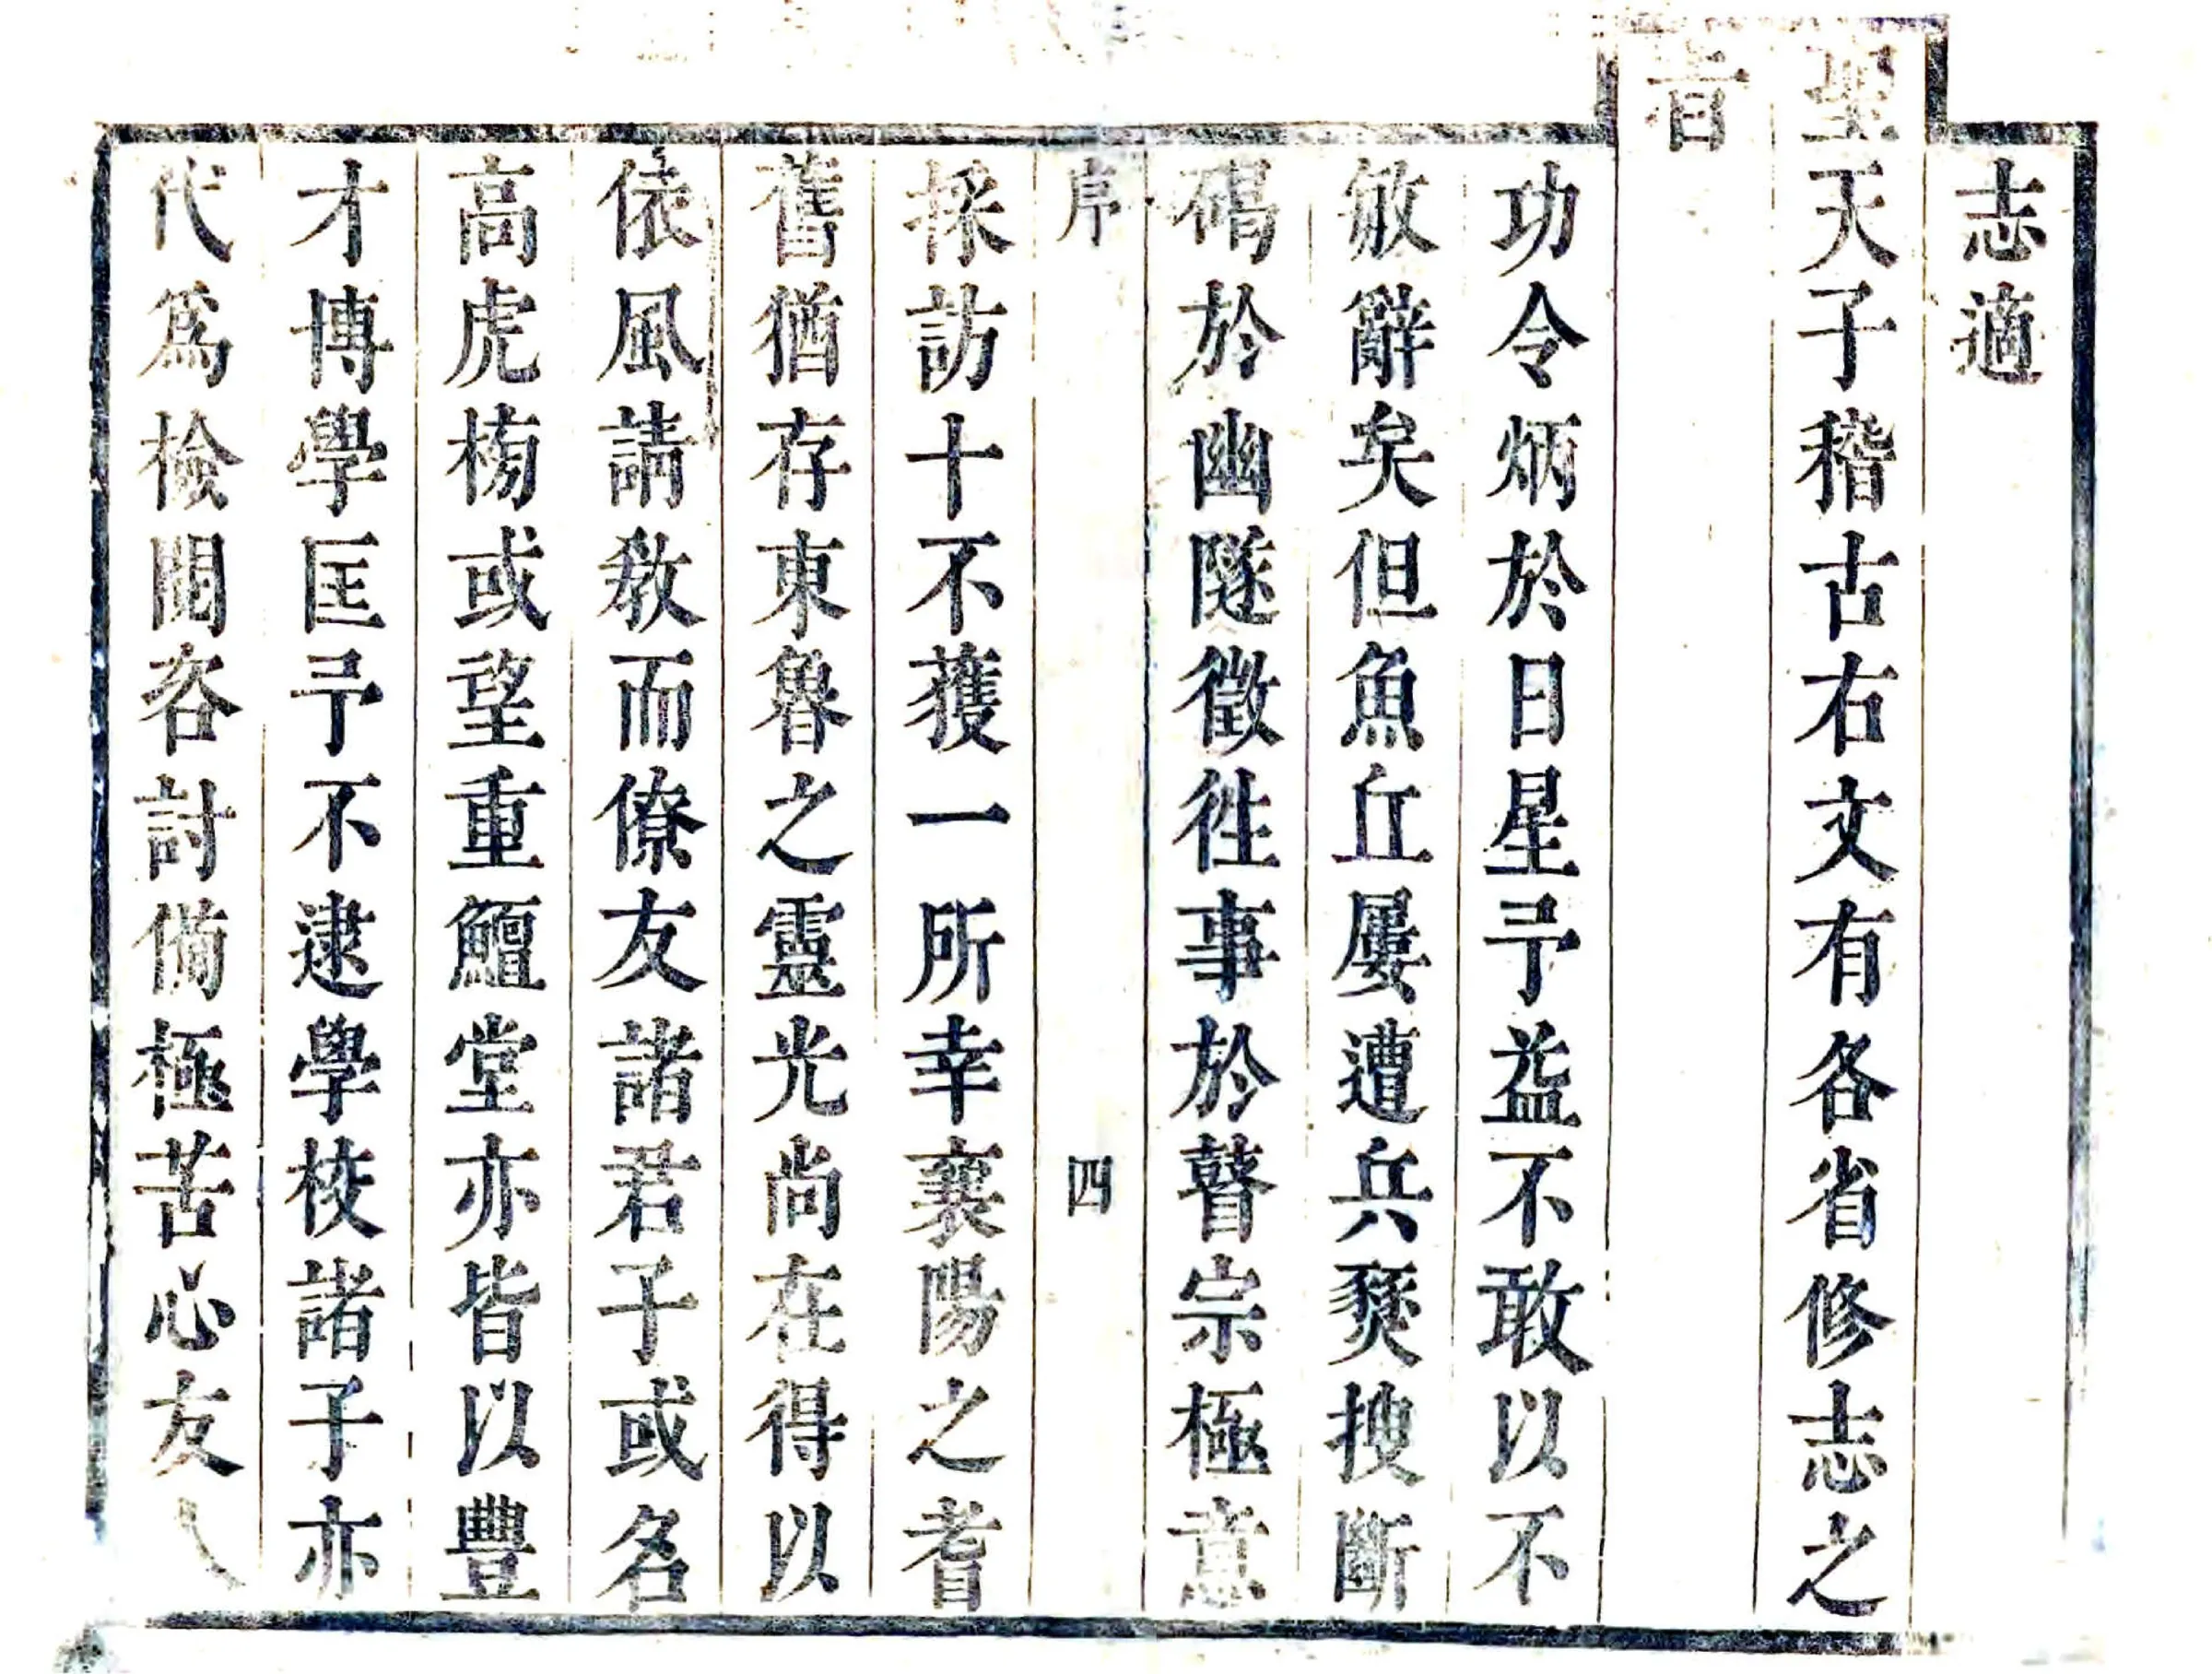 志適
聖天子稽古右文有各省修志之
旨
功令炳於日星予益不敢以不
敏辭矣但魚丘屢遭兵燹搜斷
碣於幽隧徵徃事於瞽宗極意
序 四
採訪十不獲一所幸襄陽之耆
舊猶存東魯之靈光尚在得以
依風請教而僚友諸君子或名
高虎榜或望重鱣堂亦皆以豐
才博學匡予不逮學校諸子亦
代爲檢閱咨討備極苦心友